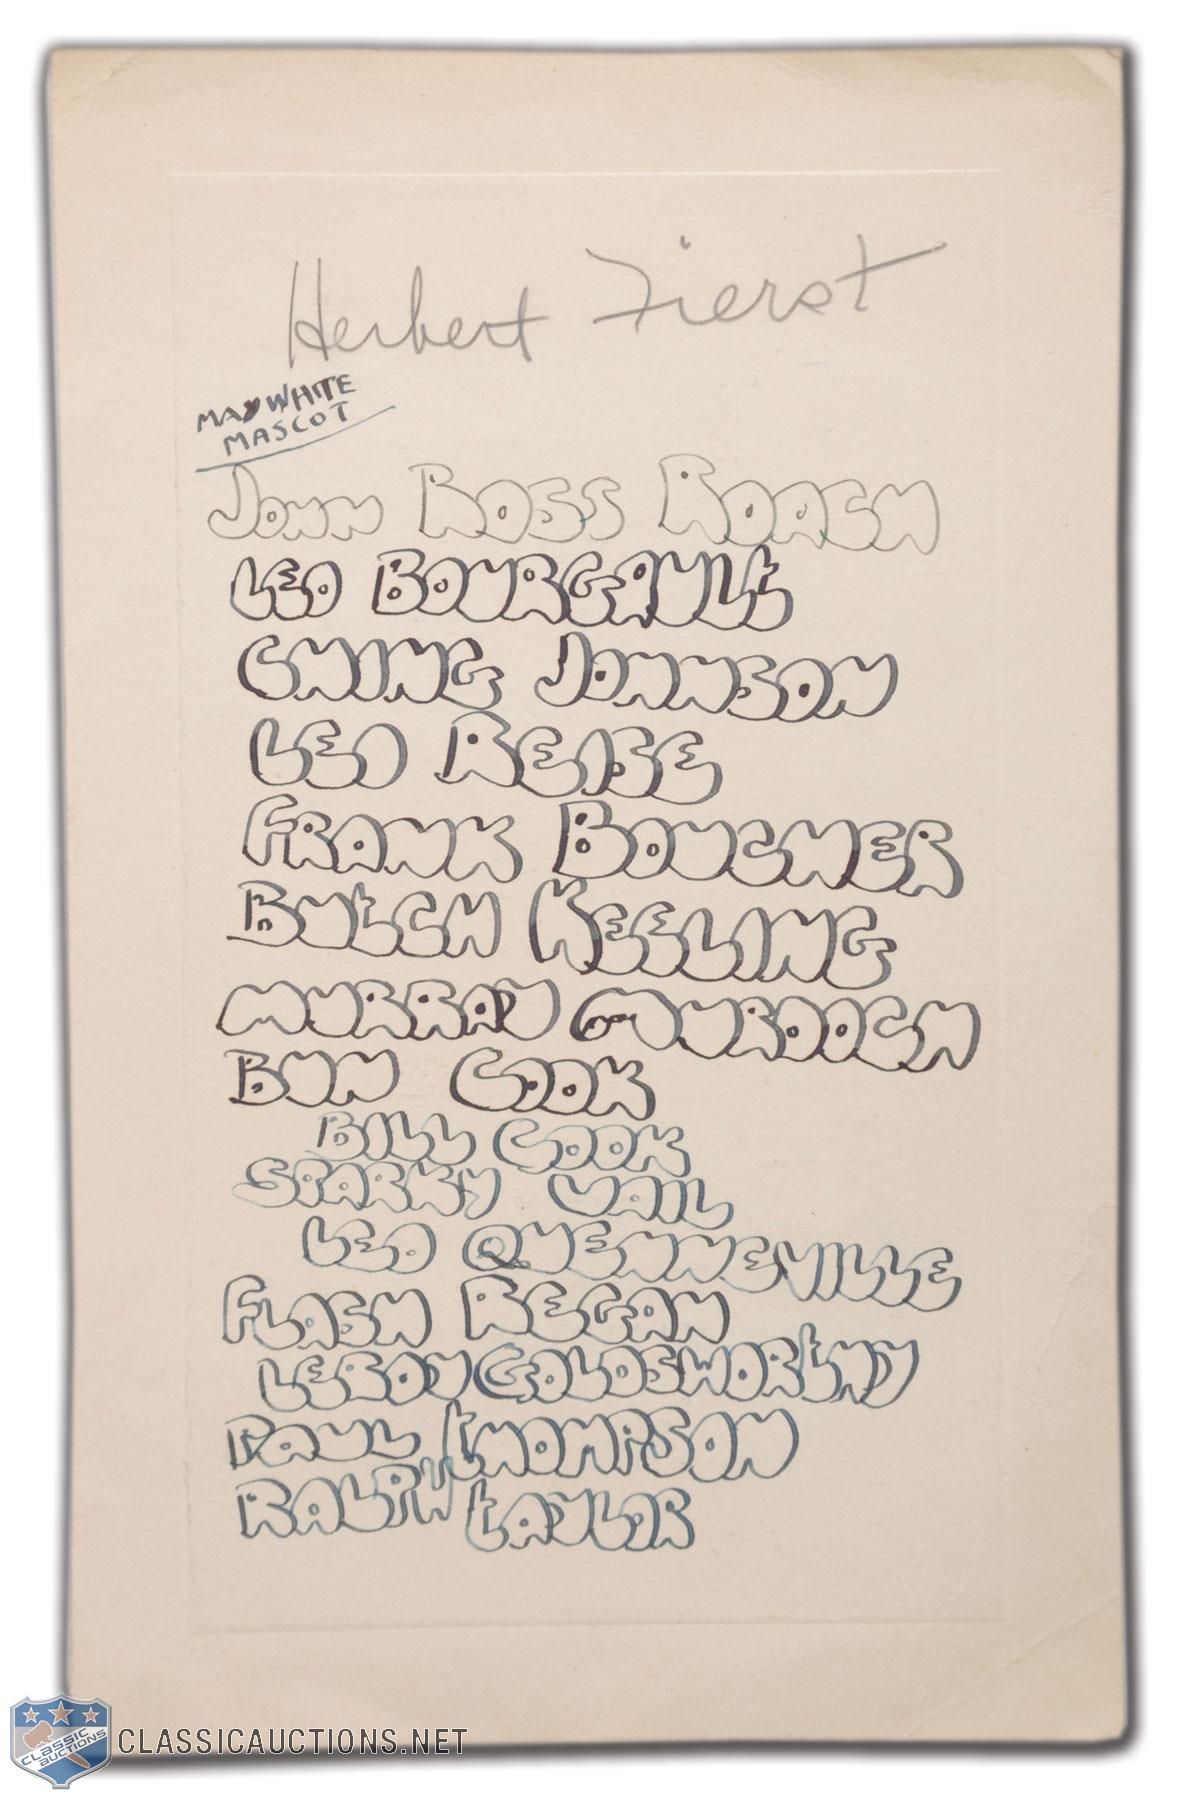 Herbert Fierst
MAX WHITE
MASCOT
JOHN ROSS ROACH
LEO BOURGAULT
CHING JOHNSON
LEO REISE
FRANK BOUCHER
BUTCH KEELING
MURRAY MURDOCH
BUN COOK
BILL COOK
SPARKY VAIL
LEO QUENNEVILLE
FLASH REGAN
LEROY GOLDSWORTHY
PAUL THOMPSON
RALPH TAYLOR
CLASSIC AUCTIONS
CLASSICAUCTIONS.NET